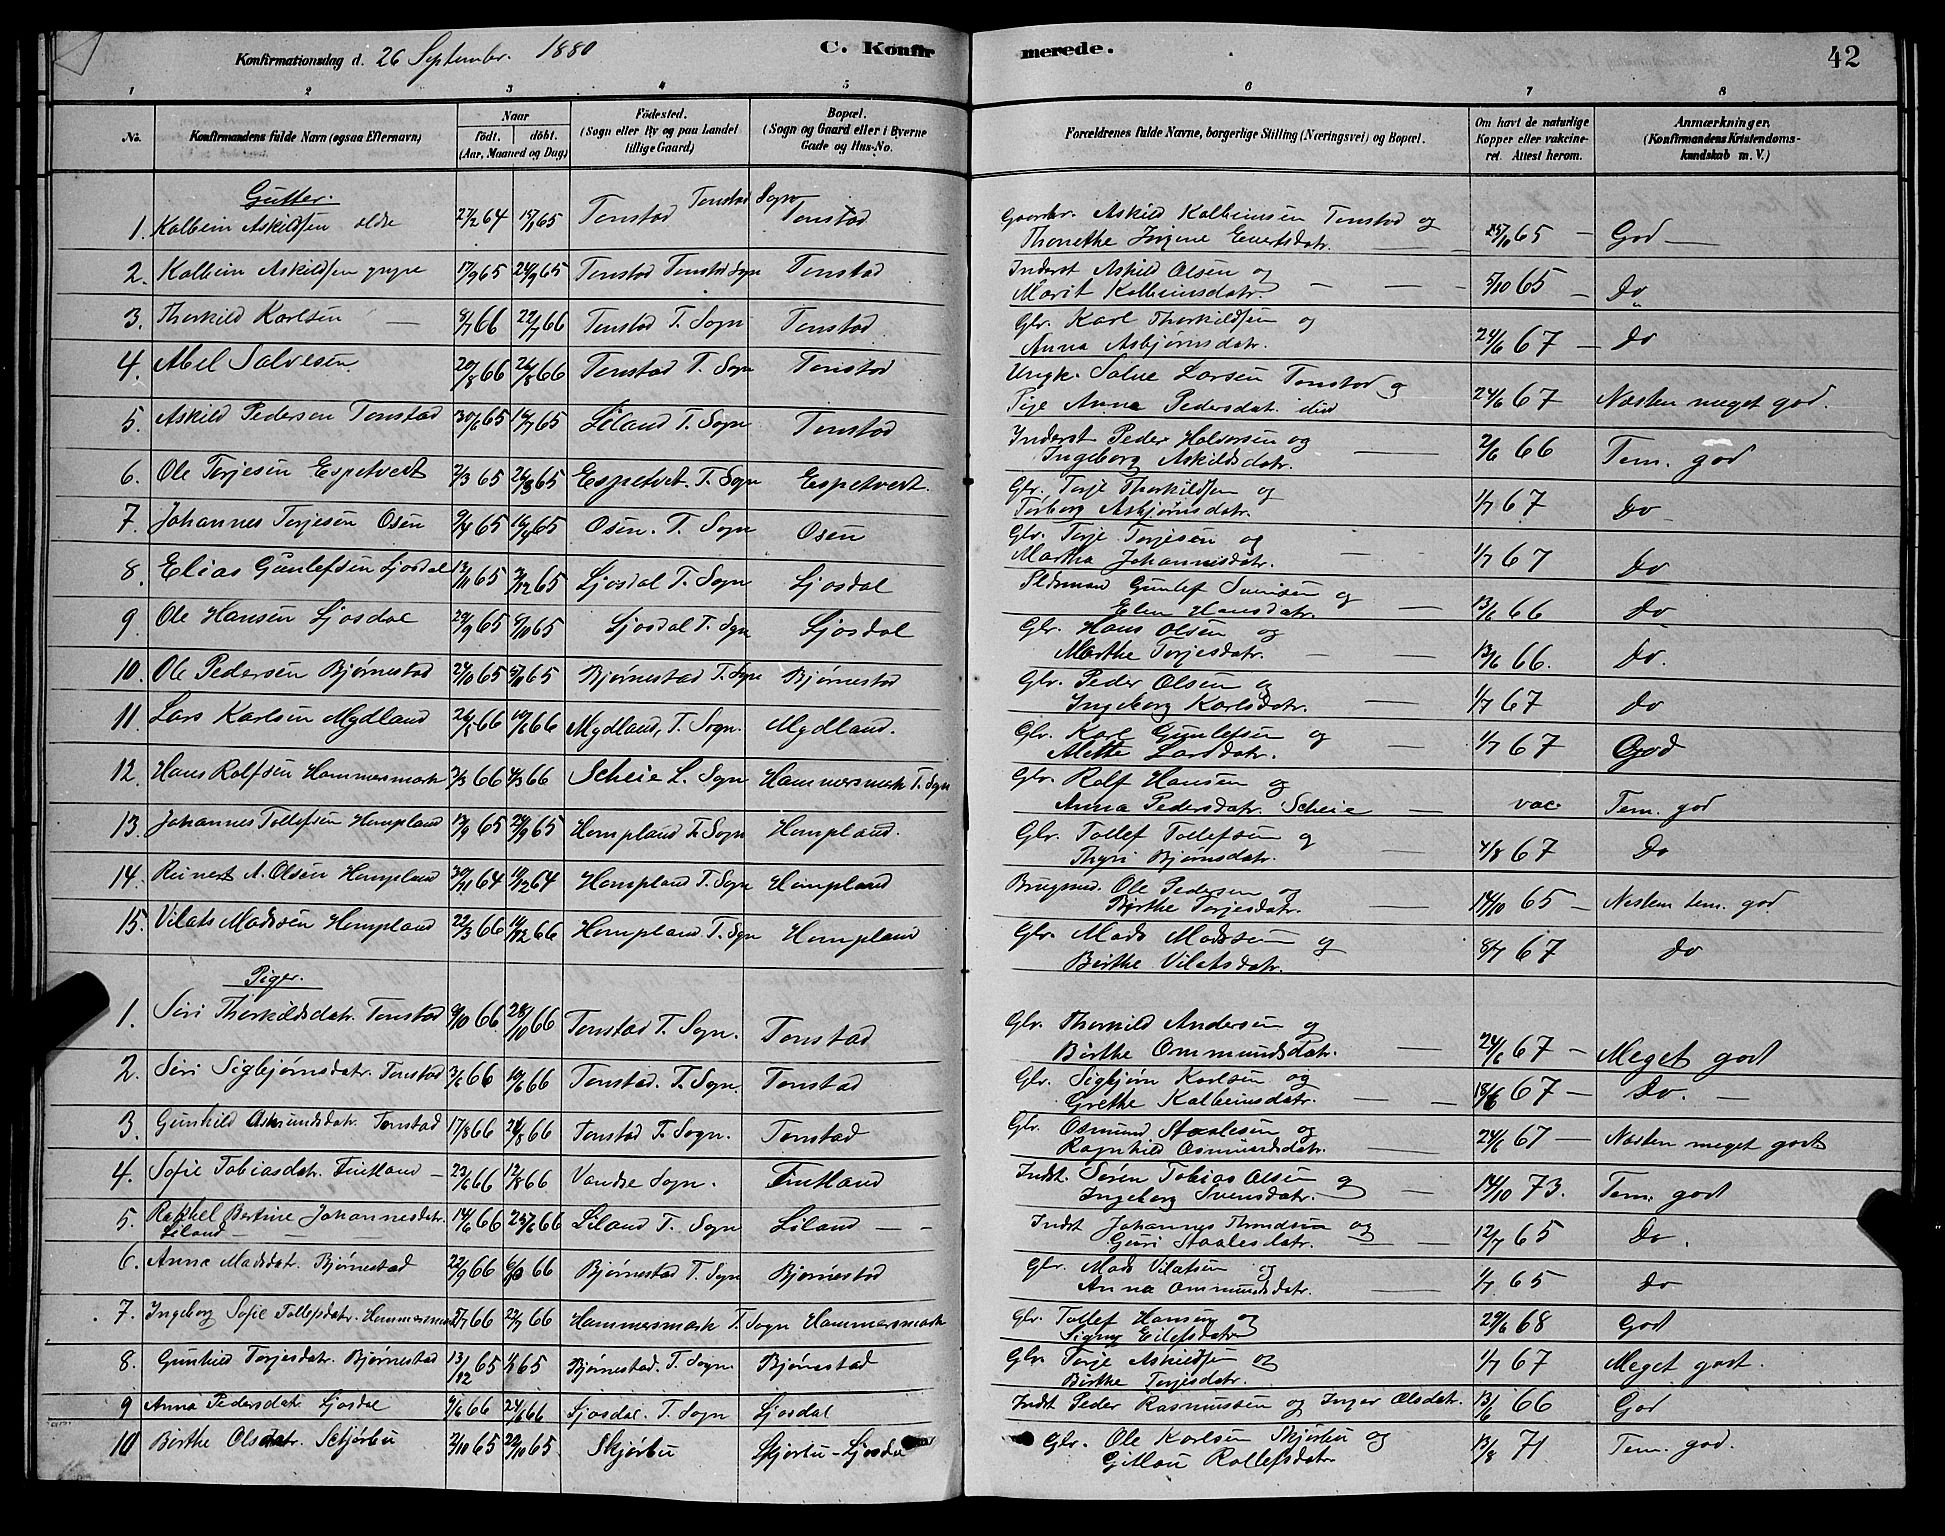 Konfirmationsdag d. 26 September. 1880
C. Konfirmerede.
42
1 2 3 4 5 6 7 8
No. Konfirmandens fulde Navn (ogsaa Efternavn) Naar født. døbt. (Aar, Maaned og Dag) Fødested. (Sogn eller By og paa Landet tillige Gaard) Bopæl. (Sogn og Gaard eller i Byerne Gade og Hus-No. Forældrenes fulde Navne, borgerlige Stilling (Næringsvei) og Bopæl. Om havt de naturlige Kopper eller vakcineret. Attest herom. Anmærkninger. (Konfirmandens Kristendomskundskab m. V.)
Gutter.
1. Kalbein Askildsen eldre 27/2 64 15/8 65 Tonstad Tonstad Sogn Tonstad Gaardbr. Askild Kalbeinsen Tonstad og Thonethe Jngine Evertsdatr. 25/10 65 God
2. Kalbein Askildsen yngre 17/9 65 24/9 65 Tonstad Tonstad Sogn Tonstad Inderst Askild Olsen og Marit Kalbeinsdatr. 5/10 65 Do
3. Thorkild Karlsen 8/7 66 22/7 66 Tonstad T. Sogn Tonstad Gbr. Karl Thorkildsen og Anna Asbjørnsdatr. 24/6 67 Do
4. Abel Salvesen 20/8 66 26/8 66 Tonstad T. Sogn Tonstad Ungk. Salve Larsen Tonstad og Pige Anna Pedersdat. ibid 24/6 67 Næsten meget god.
5. Askild Pedersen Tonstad 30/6 65 16/7 65 Liland T. Sogn Tonstad Inderst Peder Halvorsen og Ingeborg Askildsdatr. 2/6 66 Tem. god
6. Ole Terjesen Espetvert 2/3 65 26/3 65 Espetvet. T. Sogn Espetvert. Gbr. Terje Thorkildsen og Torborg Asbjørnsdatr. 1/7 67 Do
7. Johannes Terjesen Osen 9/4 65 16/4 65 Osen. T. Sogn Osen Gbr. Terje Terjesen og Martha Johannesdatr. 1/7 67 Do
8. Elias Gunlefsen Ljosdal 13/11 65 3/12 65 Ljosdal T. Sogn Ljosdal Sldsmand Gunlef Svensen og Elen Hansdatr. 13/6 66 Do
9. Ole Hansen Ljosdal 24/9 65 8/10 65 Ljosdal T. Sgn Ljosdal Gbr. Hans Olsen og Marthe Terjesdatr. 13/6 66. Do.
10. Ole Pedersen Bjørnestad 24/10 65 5/11 65 Bjørnestad T. Sogn Bjørnestad Gbr. Peder Olsen og Ingeborg Karlsdatr. 1/7 67 Do
11. Lars Karlsen Mydland 26/5 66 10/6 66 Mydland, T. Sogn. Mydland. Gbr. Karl Gunlefsen og Alette Larsdatr. 1/7 67 God
12. Hans Rolfsen Hammersmark 2/3 66 4/3 66 Scheie L. Sogn Hammersmark T. Sgn Gbr. Rolf Hansen og Anna Pedersdatr. Scheie vac. Tem. god
13. Johannes Tollefsen Hompland 12/9 65 24/9 65 Hompland T. Sogn Hompland. Gbr. Tollef Tollefsen og Thyri Bjørnsdatr. 4/8 67 Do
14. Reinert A. Olsen Hompland 30/11 64 11/12 64 Hompland T. Sogn Hompland Brugsmd. Ole Pedersen og Birthe Terjesdatr. 14/10 65 Næsten tem. god
15. Vilats Madssen Hompland 22/3 66 14/12 66 Hompland T. Sgn Hompland Gbr. Mads Madssen og Birthe Vilatsdatr. 8/7 67 Do
Piger.
1. Siri Thorkildsdatr. Tonstad 9/10 66 28/10 66 Tonstad T. Sogn. Tonstad Gbr. Thorkild Andersen og Birthe Ommundsdatr. 24/6 67 Meget godt
2. Siri Sigbjørnsdatr. Tonstad 3/6 66 10/6 66 Tonstad. T. Sogn Tonstad Gbr. Sigbjørn Karlsen og Grethe Kalbeinsdatr. 18/6 67 Do.
3. Gunhild Asmundsdatr. Tonstad 17/8 66 26/8 66 Tonstad T. Sogn. Tonstad Gbr. Osmund Staalesen og Ragnhild Osmundsdatr. 24/6 67 Næsten meget godt
4. Sofie Tobiasdatr. Fintland 23/6 66 12/8 66 Vandse Sogn. Fintland Indst. Søren Tobias Olsen og Ingeborg Svensdatr. 14/10 73. Tem. godt
5. Rachel Bertine Johannesdatr. Liland 14/6 66 25/6 66 Liland T. Sogn Liland Indst Johannes Thondsen og Guri Staalesdatr. 12/7 65 Do.
6. Anna Madsdatr. Bjørnestad 22/9 66 66 Bjørnestad T. Sogn Bjørnestad Gbr. Mads Vilatsen og Anna Ommundsdatr. 1/7 65 Do
7. Ingeborg Sofie Tollefsdatr. Hammersmark 5/7 66 22/7 66 Hammersmark T. Sogn Hammersmark Gbr. Tollef Hansen og Signy Eilefsdatr 29/6 68 God
8. Gunhild Terjesdatr. Bjørnestad 13/12 65 65 Bjørnestad. T. Sogn. Bjørnestad Gbr. Terje Askildsen og Birthe Terjesdatr. 1/7 67 Meget godt.
9 Anna Pedersdatr Ljosdal 9/6 66 24/6 66 Ljosdal. T. Sogn Ljosdal Indst Peder Rasmussen og Inger Olsdatr. 13/6 66 God
10 Birthe Olsdatr. Schjørbu 2/10 65 22/10 65. Skjørbu Skjørbu - Ljosdal Gbr. Ole Karlsen Skjørbu og Gitlau Rollefsdatr 13/8 71 Tem. god.